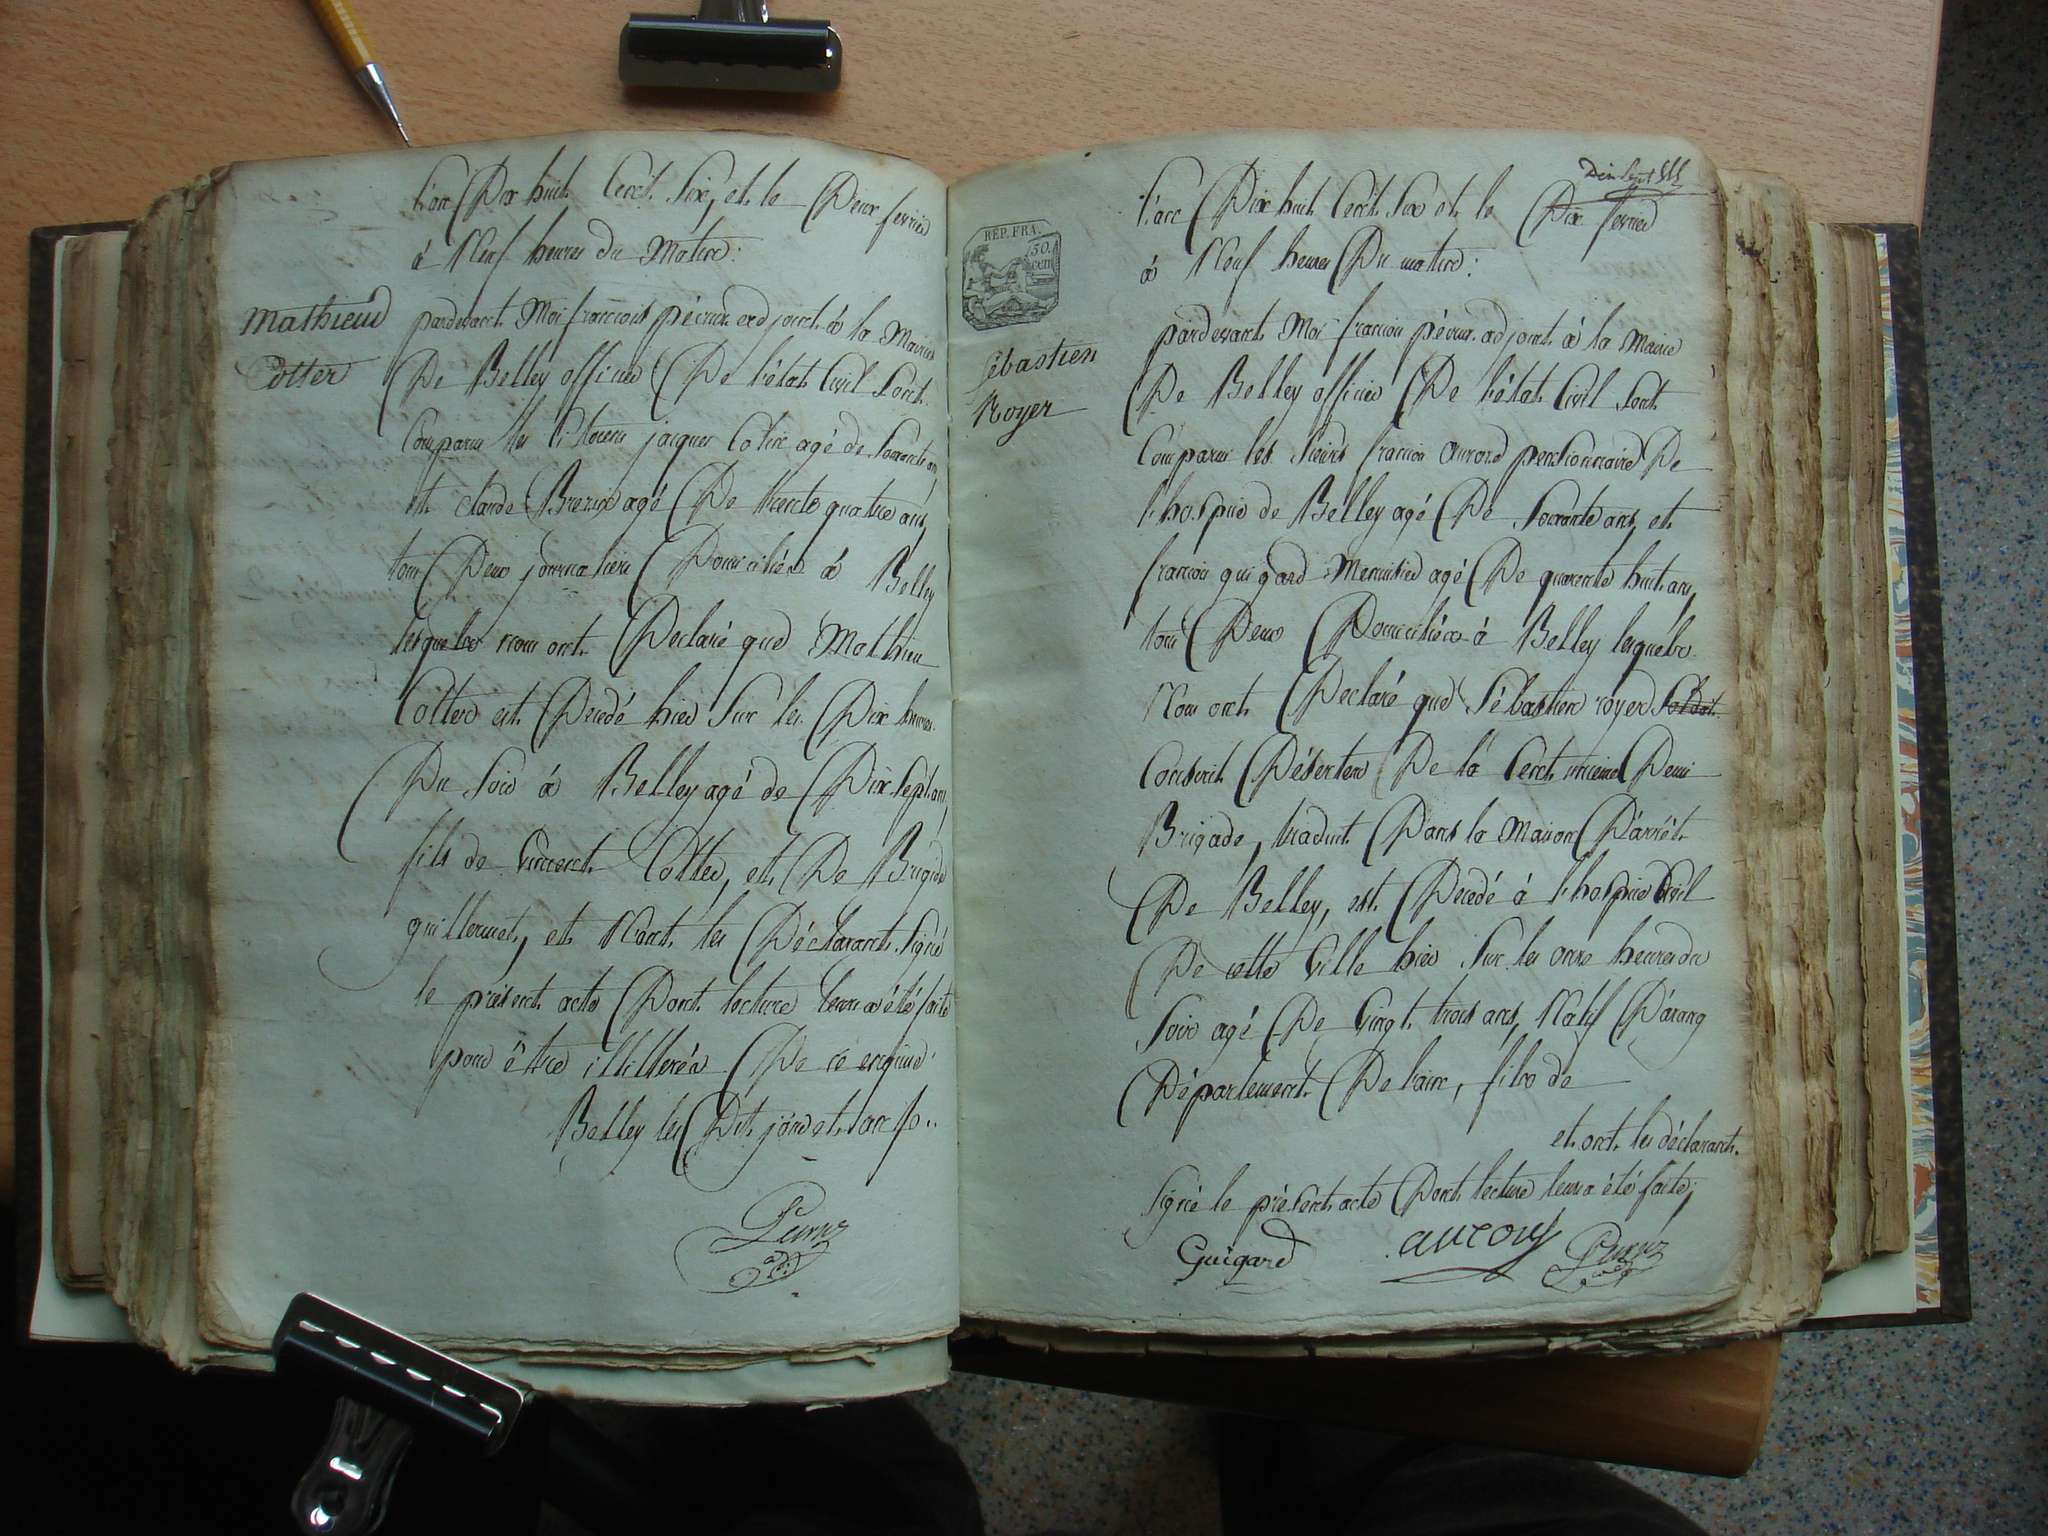 L'an Dix huit Cent Six, et le Deux fevrier
à Neuf heures du Matin:
Mathieu
Cotter
pardevant Moi françois péruz adjoint à la Mairie
De Belley officier De l'état Civil Sont
Comparus les Citoiens jacques Cotin agé de Soixante ans
et claude agé De trente quatre ans,
tous Deux journaliers Domiciliés à Belley
lesquels nous ont Declaré que Mathieu
Cotter est Decedé hier Sur les Dix heures
Du Soir à Belley agé de Dix Sept ans,
fils de Vincent Cotter, et De Brigide
guillermet, et N'ont les Déclarants Signé
le présent acte Dont lecture leur a été faite
pour être illitterés De ce enquis
Belley les Dit jour et an fo..
Peruz
adj
L'an Dix huit Cent Six et le Dix fevrier
à Neuf heures Du matin:
RÉP. FRA.
50.
cen.
Sébastien
Royer
pardevant Moi françois péruz adjoint à la Mairie
De Belley officier De l'état Civil Sont
Comparus les Sieurs françois aurond pensionnaire De
l'hospice de Belley agé De Soixante ans, et
françois guigard Menuisier agé De quarente huit ans,
tous Deux Domiciliés à Belley lesquels
Nous ont Declaré que Sébastien royer Soldat
Conscrit Déserteur De la Cent unieme Demi
Brigade, traduit Dans la Maison D'arrêt
De Belley, est Decedé à l'hospice Civil
De cette Ville hier Sur les onze heures du
Soir agé De Vingt trois ans, Natif D'arang
Département De l'ain, fils de
et ont les déclarants
Signé le présent acte Dont lecture leur a été faite;
Guigard
Peruz